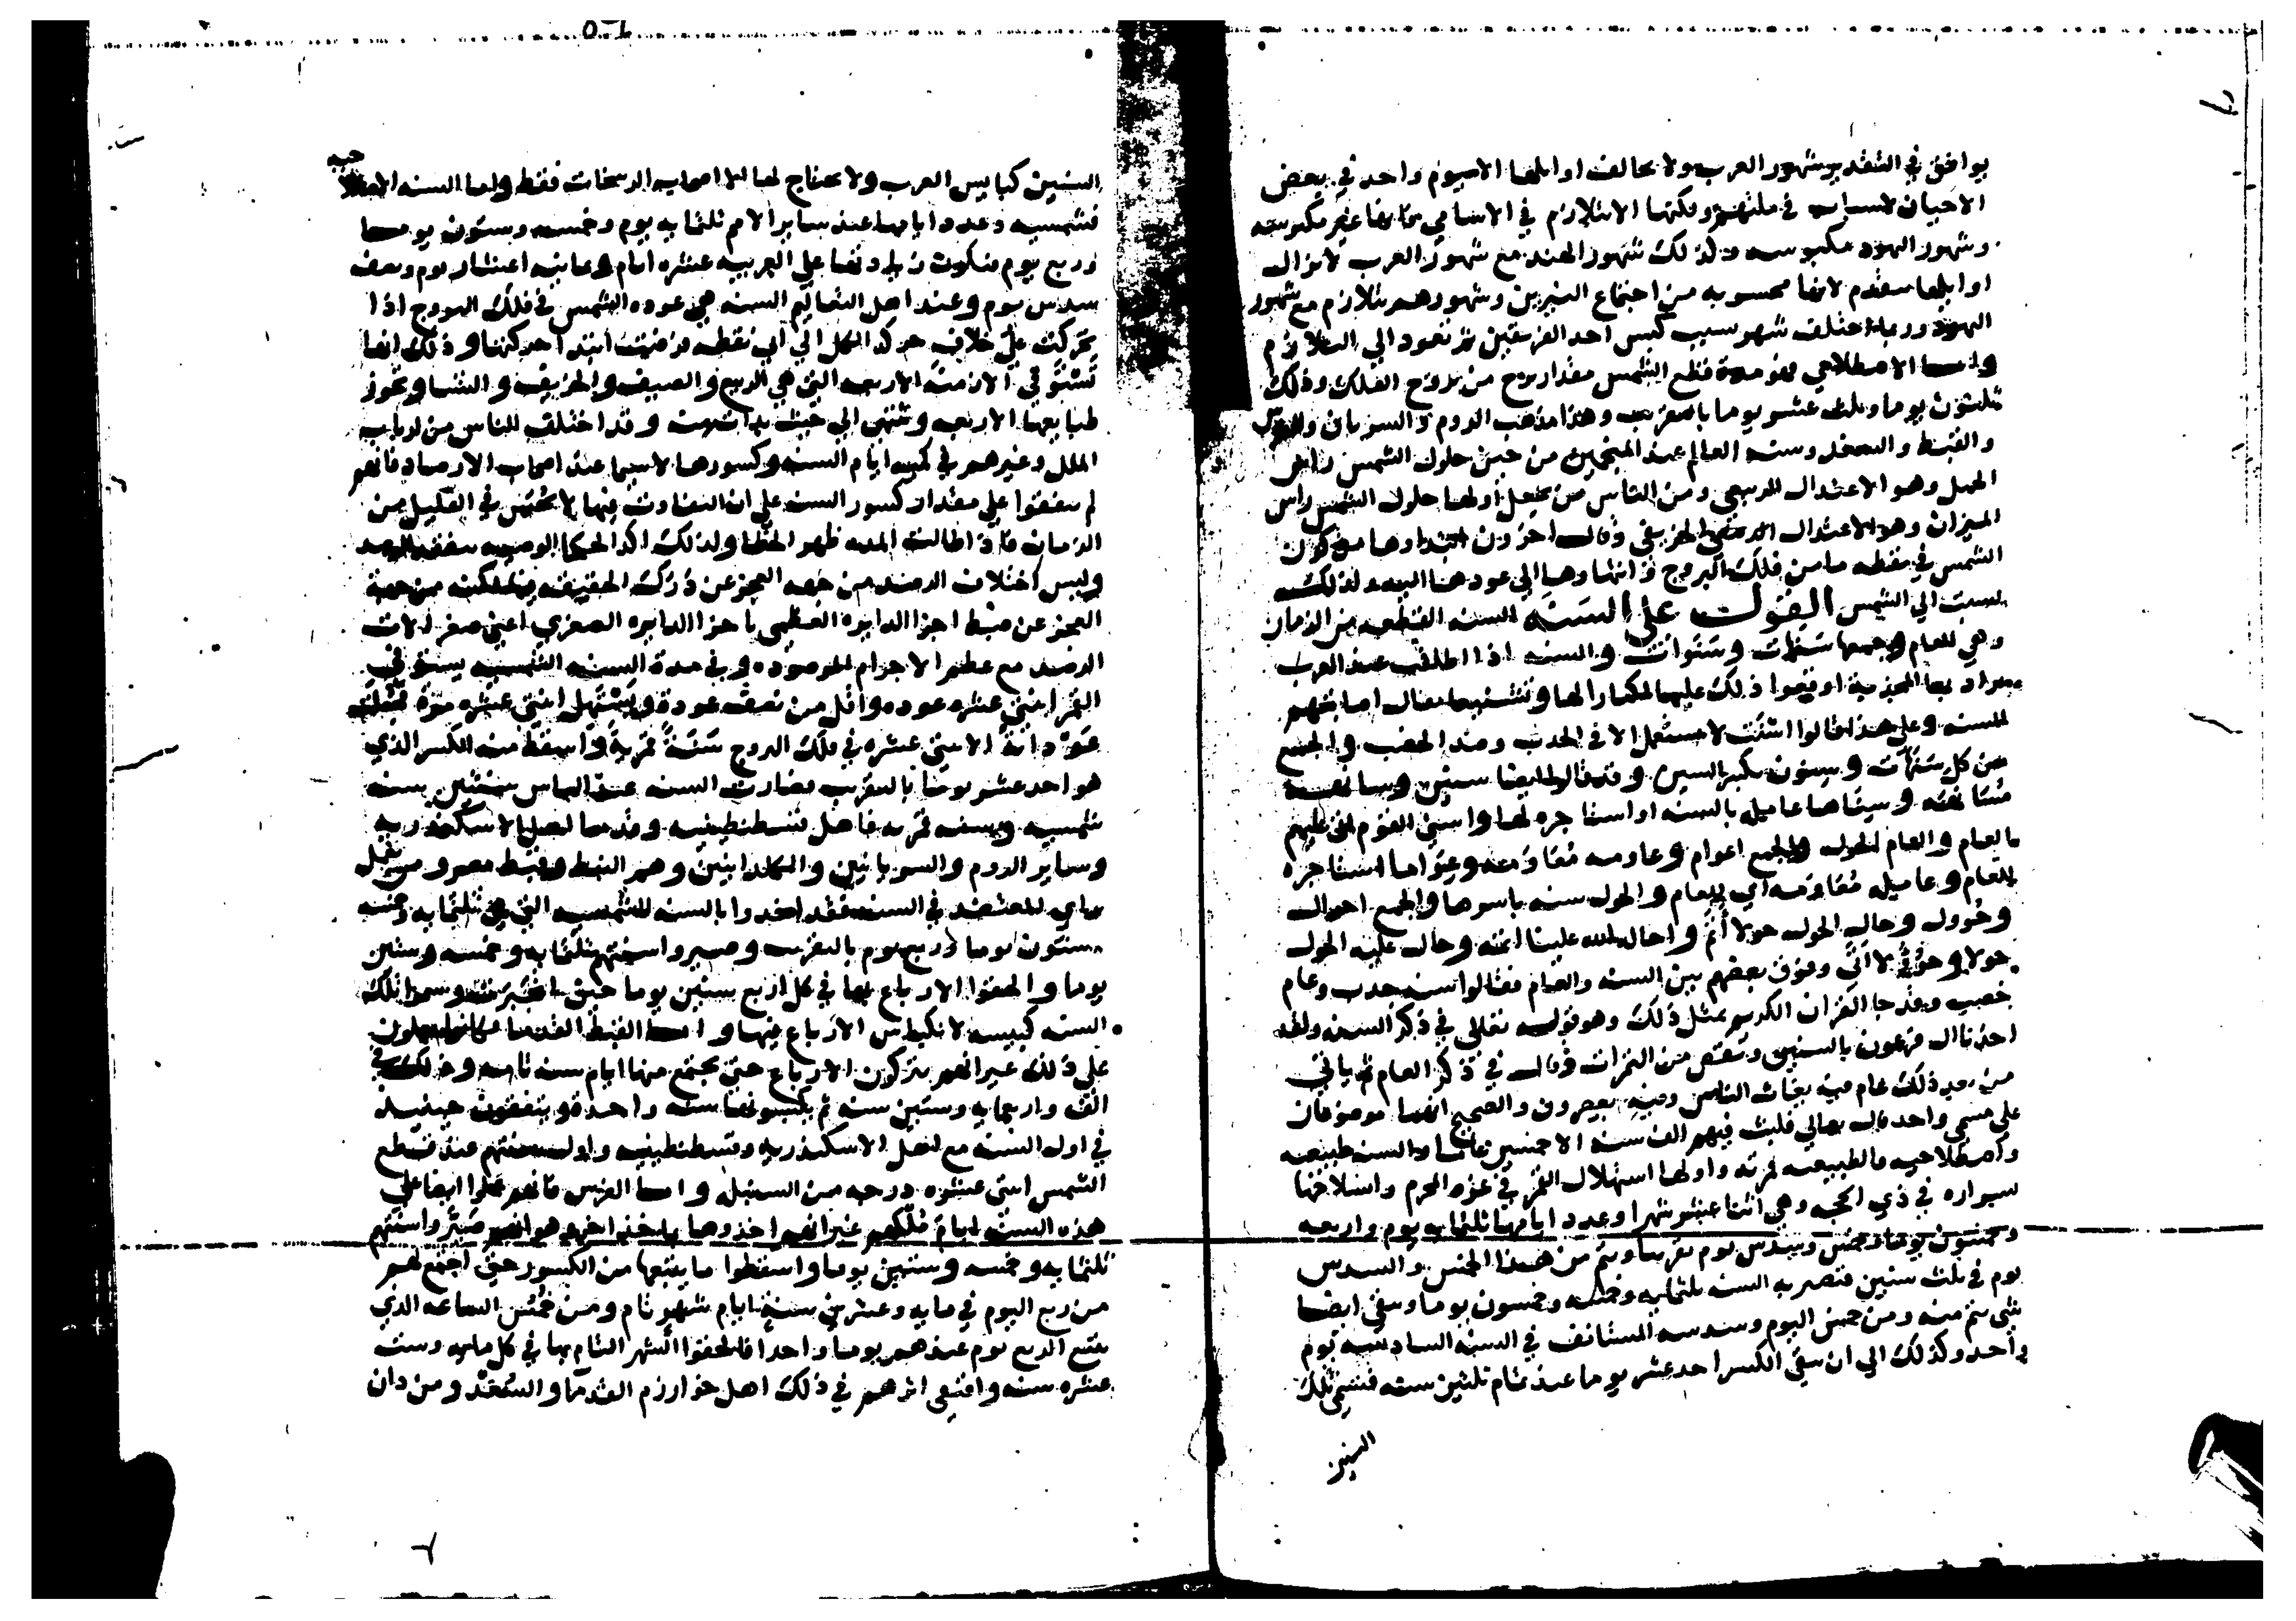 يوافق في التقدير شهور العرب ولا يخالف اوايلها الا بيوم واحد في بعض
الاحيان لاسباب في ملتهم ولكنها الا تتلازم في الاسامي لانها غير مكبوسه
وشهور اليهود مكبوسه وكذلك شهور الهند مع شهور العرب لا تزال
اوايلها سقدم لانها محسوبه من اجتماع النيرين وشهورهم تتلازم مع شهور
اليهود وربما اختلف شهر بسبب كبس احد الفريقين ثم تعود الي التلازم
واما الاصطلاحي فهو مدة قطع الشمس مقدار برج من بروج الفلك وذلك
ثلثون يوما وثلث عشر يوما بالتقريب وهذا مذهب الروم والسريان والفرس
والقبط والصغد وسنه العالم عند المنجمين من حين حلول الشمس راس
الحمل وهو الاعتدال الربيعي ومن الناس من يجعل اولها حلول الشمس راس
الميزان وهو الاعتدال الخريفي وقال اخرون ابتداوها من كون
الشمس في نقطه ما من فلك البروج وانتهاوها الي عودها اليه ولذلك
نسبت الي الشمس القول علي السنه السنه القطعه من الزمان
وهي العام وجمعها سنهات وسنوات والسنه اذا اطلقت عند العرب
يراد بها المجدبة اوقعوا ذلك عليها اكبارا لها وتشنيعا يقال اصابتهم
السنه وعلي هذا قالوا اسنت لا يستعمل الا في الجدب وضد الخصب والجمع
من كل سنهات وسنون بكسر السين وقد قالوا لقيتها سنين وسانهت
مسانهه وسناها عامله بالسنه او استاجره لها واسني القوم اتي عليهم
العام والعام الحول والجمع اعوام وعاومه معاومه وعواما استاجره
للعام وعامله معاومه اي للعام والحول سنه باسرها والجمع احوال
وحوول وحال الحول حولا تم واحال الله علينا اتمه وحال عليه الحول
حولا وحوولا اتي وفرق بعضهم بين السنه والعام فقالوا سنه جدب وعام
خصب وقد جا القران الكريم بمثل ذلك وهو قوله تعالي في ذكر السنه ولقد
اخذنا ال فرعون بالسنين ونقص من الثمرات وقال في ذكر العام ثم ياتي
من بعد ذلك عام فيه يغاث الناس وفيه يعصرون والصحيح انهما موضوعان
علي مسمي واحد قال تعالي فلبث فيهم الف سنه الا خمسين عاما والسنه طبيعيه
واصطلاحيه فالطبيعيه قمريه واولها استهلال القمر في غره المحرم وانسلاخها
سراره في ذي الحجه وهي اثنا عشر شهرا وعدد ايامها ثلثمايه يوم واربعه
وخمسون يوما وخمس وسدس يوم تقريبا ويتم من هذا الخمس والسدس
يوم في ثلث سنين فتصير به السنه ثلثمايه وخمسه وخمسون يوما ويبقي ايضا
شي يتم منه ومن خمس اليوم وسدسه المستانف في السنه السادسه يوم
واحد وكذلك الي ان يبقي الكسر احد عشر يوما عند تمام ثلثين سنه فتسمي تلك
السنين
السنين كبايس العرب ولا يحتاج لها الا اصحاب الزيجات فقط واما السنه الاصطلاحيه
فشمسيه وعدد ايامها عند ساير الامم ثلثمايه يوم وخمسه وستون يوما
وربع يوم فتكون زيادتها علي العربيه عشره ايام وثمانيه اعشار يوم ونصف
سدس يوم وعند اهل التعاليم السنه هي عوده الشمس في فلك البروج اذا
تحركت علي خلاف حركه الكل الي اي نقطه فرضت ابتدا حركتها وذلك انها
تستوفي الازمنة الاربعه التي هي الربيع والصيف والخريف والشتا وتحوز
طبايعها الاربعه وتنتهي الي حيث بدات منه وقد اختلف الناس من ارباب
الملل وغيرهم في كميه ايام السنه وكسورها لاسيما عند اصحاب الارصاد فانهم
لم يتفقوا علي مقدار كسور السنه علي ان التفاوت فيها لا يحس في القليل من
الزمان فاذا طالت المده ظهر الخطا ولذلك اكد الحكما الوصيه بتفقد الرصد
وليس اختلاف الرصد من جهه العجز عن درك الحقيقه فيها لكنه من جهة
العجز عن ضبط اجزا الدايره العظمي باجزا الدايره الصغري اعني صغر الات
الرصد مع عظم الاجرام المرصوده وفي مدة السنه الشمسيه يستوفي
القمر اثنتي عشره عوده واقل من نصف عودة ويستهل اثنتي عشره مرة فجعلت
عوداته الاثنتي عشره في فلك البروج سنة قمرية واسقط منه الكسر الذي
هو احد عشر يوما بالتقريب فصارت السنه عند الناس سنتين سنه
شمسيه وسنه قمريه فاهل قسطنطينيه وقدما اهل الاسكندريه
وساير الروم والسريانين والكلدانين وهم النبط وقبط مصر ومن قبل
براي المعتضد في السنه فقد اخذوا بالسنه الشمسيه التي هي ثلثمايه وخمسه
وستون يوما وربع يوم بالتقريب وصيروا سنتهم ثلثمايه وخمسه وستين
يوما والحقوا الارباع بها في كل اربع سنين يوما حين انجبرت وسموا تلك
السنه كبيسه لانكباس الارباع فيها واما القبط القدما فكانوا يعملون
علي ذلك غير انهم يتركون الارباع حتي يجتمع منها ايام سنه تامه وذلك في
الف واربعمايه وستين سنه ثم يكبسونها سنه واحدة ويتفقون حينيذ
في اول السنه مع اهل الاسكندريه وقسطنطينيه واول سنتهم عند قطع
الشمس اثني عشره درجه من السنبله واما الفرس فانهم عملوا ايضا علي
هذه السنه ايام ملكهم غير انهم اخذوها باخذ اخر وهو انهم صيروا سنتهم
ثلثمايه وخمسه وستين يوما واسقطوا ما يتبعها من الكسور حتي اجتمع لهم
من ربع اليوم في مايه وعشرين سنة ايام شهر تام ومن خمس الساعه الذي
يتبع الربع يوم عندهم يوما واحدا فالحقوا الشهر التام بها في كل مايه وسته
عشره سنه واقتفي اثرهم في ذلك اهل خوارزم القدما والصغد ومن دان